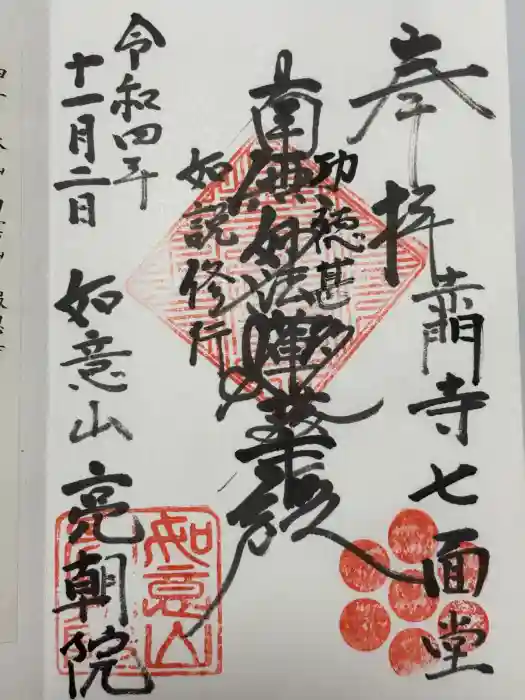 奉拝
赤門寺七面堂
功徳甚多
南無妙法蓮華経
如説修行
令和四年
十一月二日
如意山 亮朝院
如意山